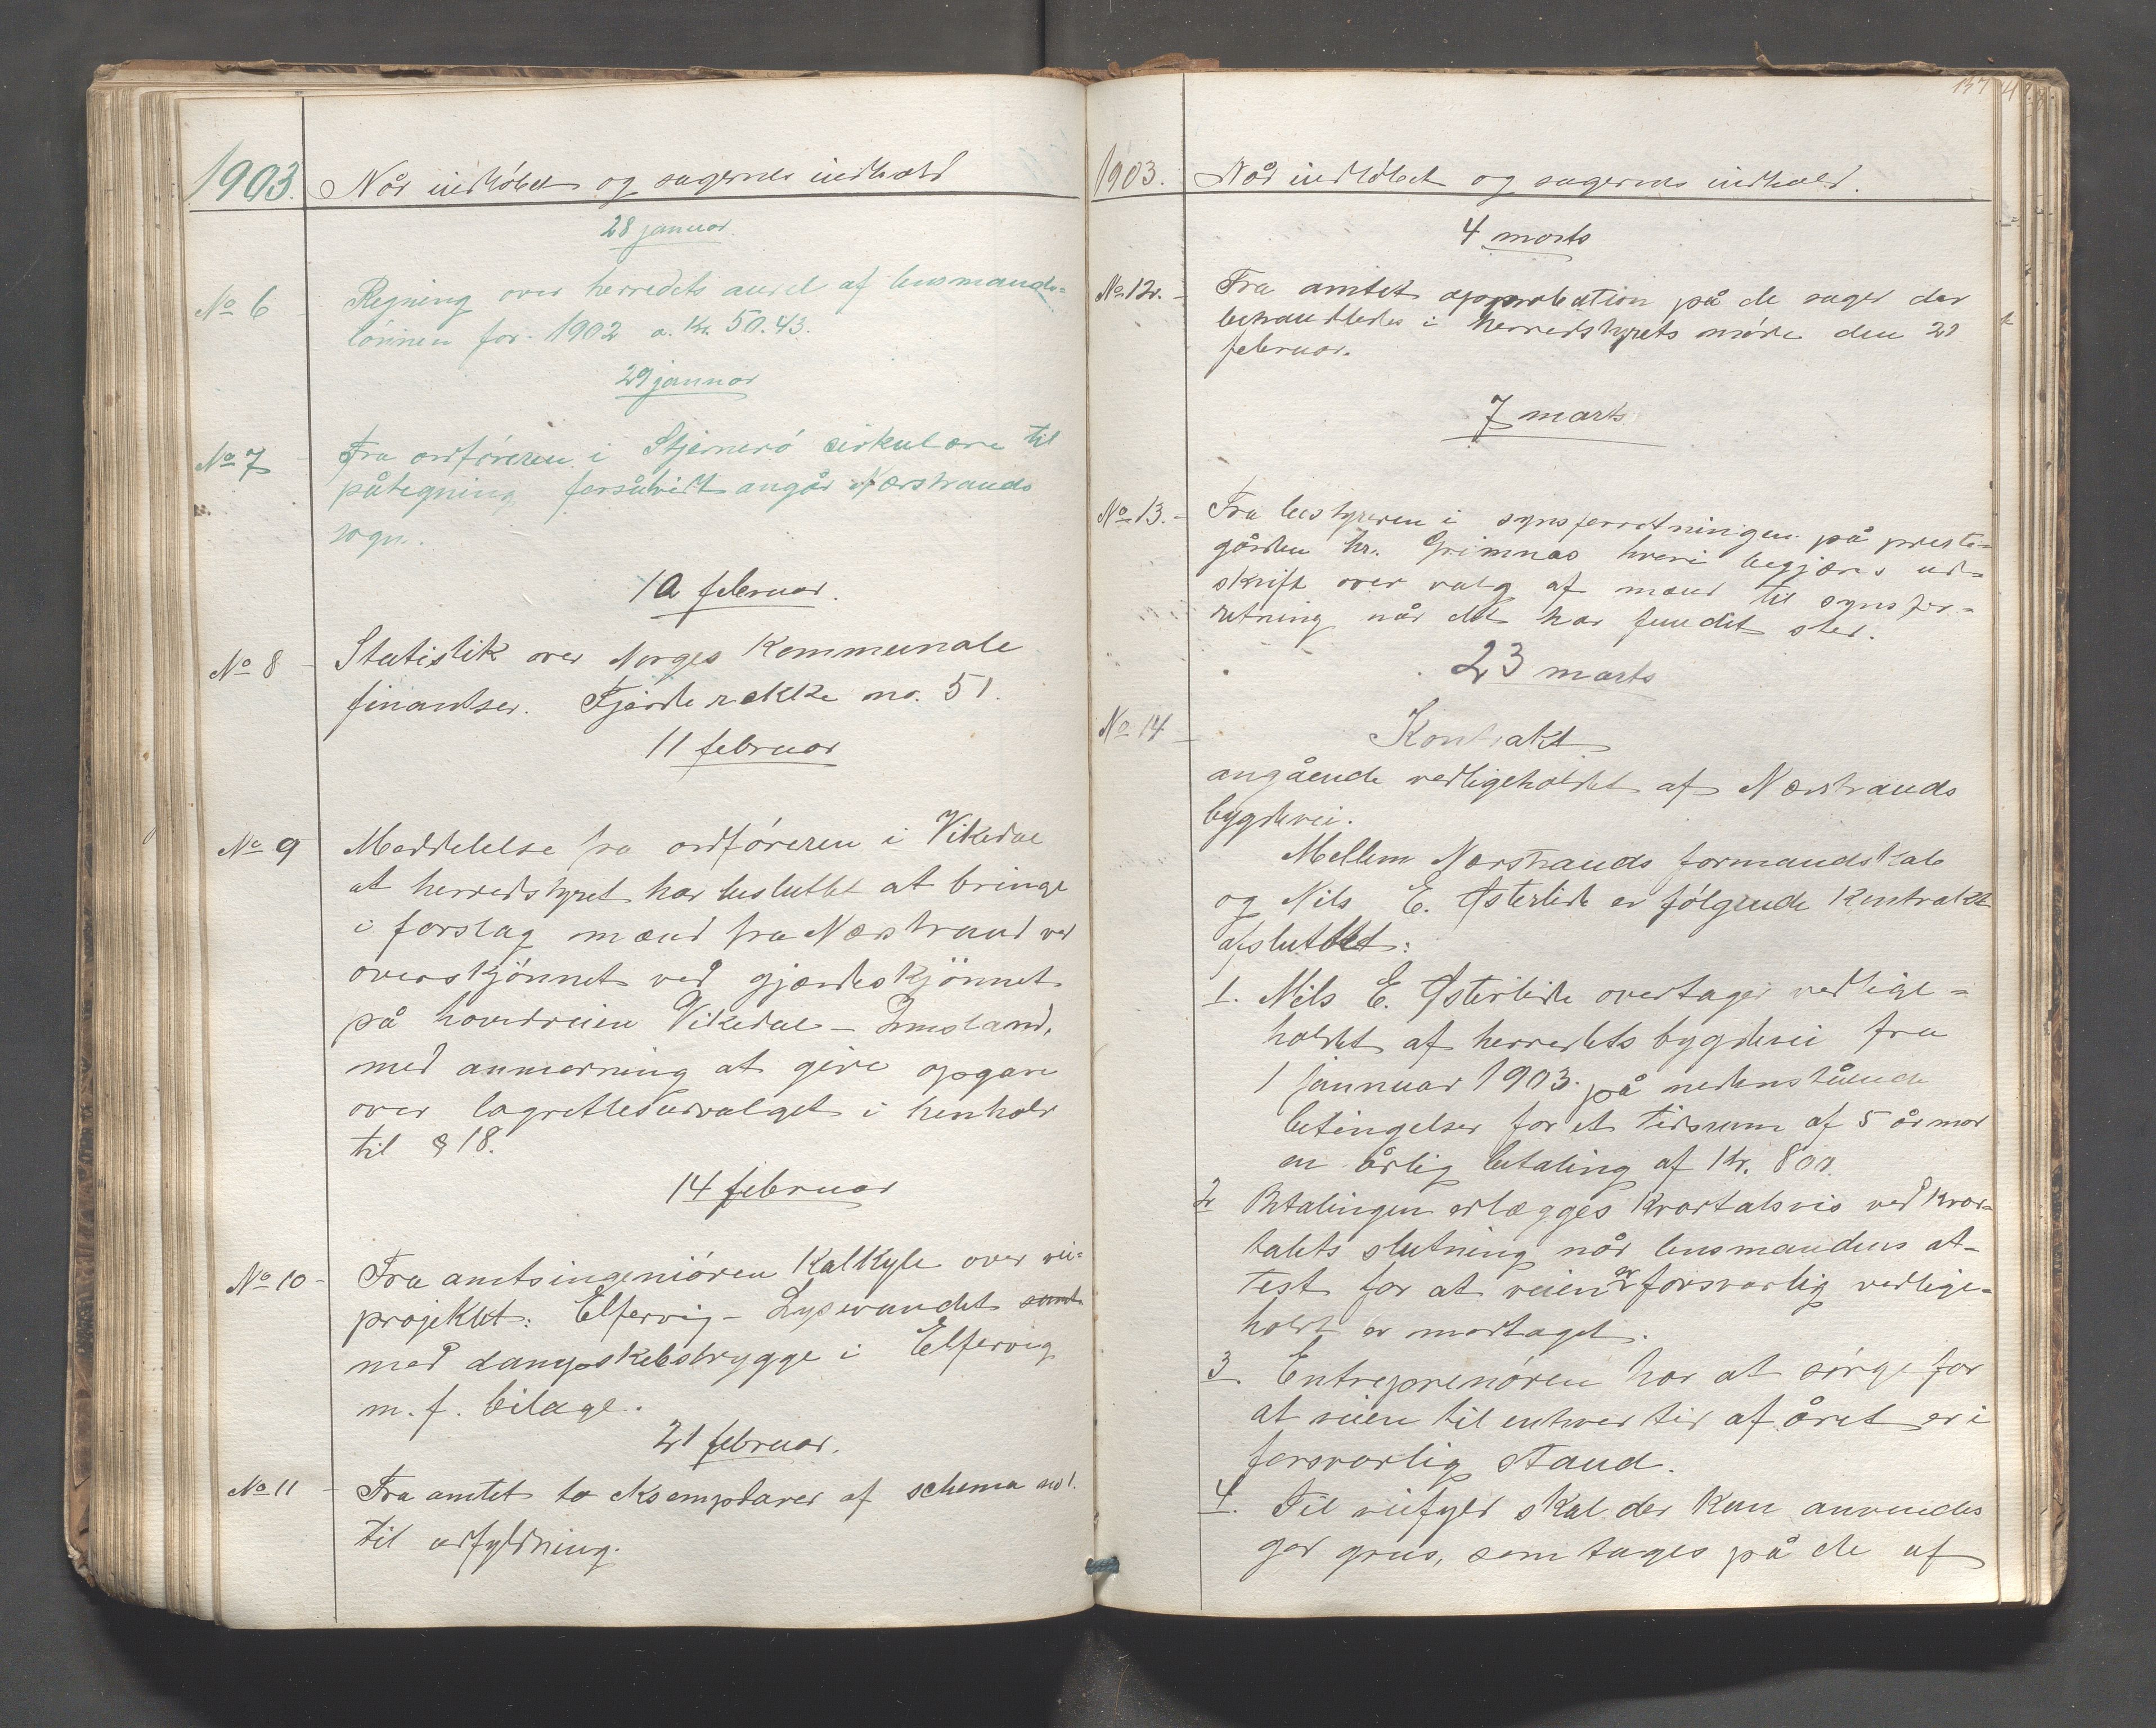 1903. Når indløbet og sagernes indhold
28 januar.
No 6 Regning over herredets andel af lensmands=
lønnen for 1902 a. Kr. 50.43.
29 januar
No 7 Fra ordføreren i Stjernerö cirkulære til
påtegning forsåvidt angår Nærstrands
sogn.
10 februar.
No 8 Statistik over Norges Kommunale
finantser. Fjerde række no. 51.
11 februar
No 9 Meddelelse fra ordføreren i Vikedal
at herredstyret har besluttet at bringe
i forslag mænd fra Nærstrand ved
overskjönnet ved gjærdeskjönnet
på hovedveien Vikedal - Imsland,
med anmerning at give opgave
over lagrettesudvalget i henhold
til § 18.
14 februar
No 10 - Fra amtsingeniøren Kalkyle over vei=
projektet: Elfervig - Lysevandet samt
med dampskibsbrygge i Elfervig
m. f. bilage.
21 februar.
No 11 - Fra amtet to eksemplarer af schema no 1.
til udfyldning.
137
1903. Når indløbet og sagernes indhold.
4 marts
No 12. - Fra amtet approbation på de sager der
behandledes i herredstyrets møde den 21
februar.
7 marts
No 13. - Fra bestyreren i synsforretningen på preste=
gården hr. Grimnæs hvori begjæres ud=
skrift over valg af mænd til synsfor=
retning når det har fundet sted.
23 marts
No 14 - Kontrakt
angående vedligeholdet af Nærstrands
bygdevei.
Mellem Nærstrands formandskab
og Nils E. Østerlide er følgende Kontrakt
afsluttet:
1. Nils E. Østerlide overtager vedlige=
holdet af herredets bygdevei fra
1 jannuar 1903. på nedenstående
betingelser for et tidsrum af 5 år mod
en årlig betaling af Kr. 800.
2 Betalingen erlægges kvartalsvis ved kvar=
talets slutning når lensmandens at=
test for at veien er forsvarlig vedlige=
holdt er modtaget.
3. Entreprenøren har at sørge for
at veien til enhver tid af året er i
forsvarlig stand.
4. Til veifyld skal der kun anvendes
god grus, som tages på de af